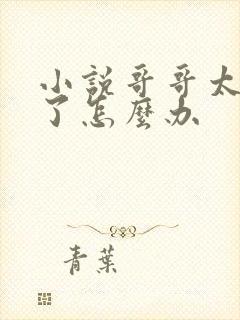 小說哥哥太
了怎麼办
青葉